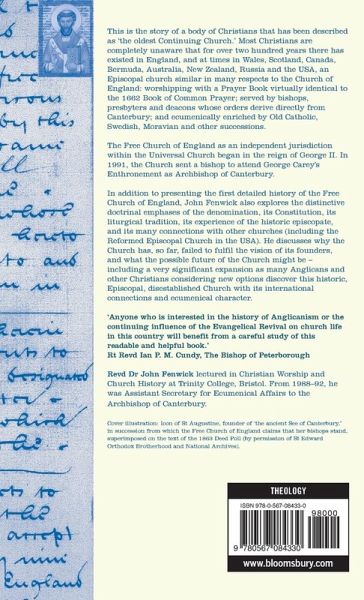 This is the story of a body of Christians that has been described
as 'the oldest Continuing Church.' Most Christians are
completely unaware that for over two hundred years there has
existed in England, and at times in Wales, Scotland, Canada,
Bermuda, Australia, New Zealand, Russia and the USA, an
Episcopal church similar in many respects to the Church of
England: worshipping with a Prayer Book virtually identical to
the 1662 Book of Common Prayer; served by bishops,
presbyters and deacons whose orders derive directly from
Canterbury; and ecumenically enriched by Old Catholic,
Swedish, Moravian and other successions.
The Free Church of England as an independent jurisdiction
within the Universal Church began in the reign of George II. In
1991, the Church sent a bishop to attend George Carey's
Enthronement as Archbishop of Canterbury.
In addition to presenting the first detailed history of the Free
Church of England, John Fenwick also explores the distinctive
doctrinal emphases of the denomination, its Constitution, its
liturgical tradition, its experience of the historic episcopate,
and its many connections with other churches (including the
Reformed Episcopal Church in the USA). He discusses why the
Church has, so far, failed to fulfil the vision of its founders,
and what the possible future of the Church might be –
including a very significant expansion as many Anglicans and
other Christians considering new options discover this historic,
Episcopal, disestablished Church with its international
connections and ecumenical character.
'Anyone who is interested in the history of Anglicanism or the
continuing influence of the Evangelical Revival on church life
in this country will benefit from a careful study of this
readable and helpful book.'
Rt Revd Ian P. M. Cundy, The Bishop of Peterborough
Revd Dr John Fenwick lectured in Christian Worship and
Church History at Trinity College, Bristol. From 1988–92, he
was Assistant Secretary for Ecumenical Affairs to the
Archbishop of Canterbury.
Cover illustration: Icon of St Augustine, founder of 'the ancient See of Canterbury,'
in succession from which the Free Church of England claims that her bishops stand,
superimposed on the text of the 1863 Deed Poll (by permission of St Edward
Orthodox Brotherhood and National Archives).
THEOLOGY
ISBN 978-0-567-08433-0
98000
9 780567 084330
www.bloomsbury.com
by this
to and
designated
which
to
accept
England